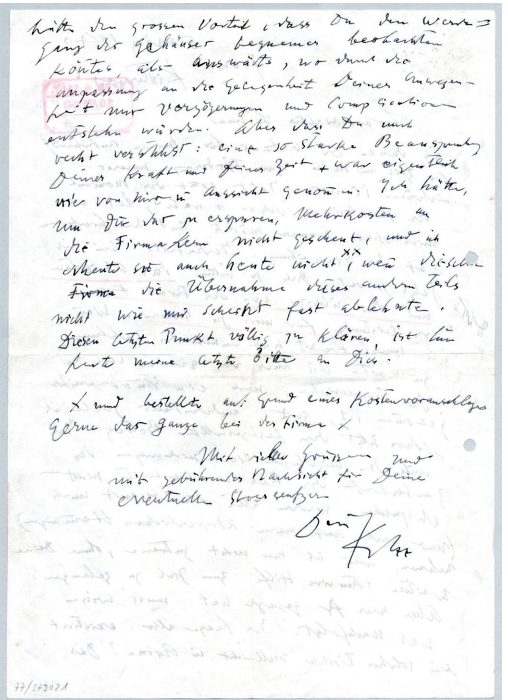 hätte den grossen Vorteil, dass Du den Werde=
gang der Gehäuser bequemer beobachten
könntest, als auswärts, wo durch die
Anpassung an die Gelegenheit Deiner Anwesen-
heit nur Verzögerungen und Complicationen
entstehen würden. Aber dass Du mich
recht verstehst: eine so starke Beanspruchung
Deiner Kraft und Deiner Zeit war eigentlich
nie von mir in Aussicht genommen. Ich hätte,
um Dir das zu ersparen, Mehrkosten an
die Firma Kern nicht gescheut, und ich
scheute sie auch heute nicht xx, wenn dieselbe
die Übernahme dieses andern Teils
nicht wie mir scheint fast ablehnte.
Diesen letzten Punkt völlig zu klären, ist für
heute meine letzte Bitte an Dich.
X und bestellte auf Grund eines Kostenvoranschlages
gerne das Ganze bei der Firma X
Mit vielen Grüssen und
mit gebührender Nachsicht für Deine
eventuellen Stossseufzer
Dein
77/123021